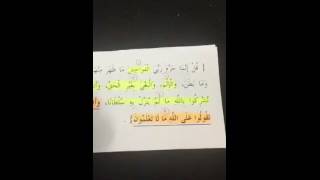 { قُلْ إِنَّمَا حَرَّمَ رَبِّيَ الْفَوَاحِشَ مَا ظَهَرَ مِنْهَا
وَمَا بَطَنَ، وَالْإِثْمَ، وَالْبَغْيَ بِغَيْرِ الْحَقِّ،
تُشْرِكُوا بِاللَّهِ مَا لَمْ يُنَزِّلْ بِهِ سُلْطَانًا،
تَقُولُوا عَلَى اللَّهِ مَا لَا تَعْلَمُونَ }